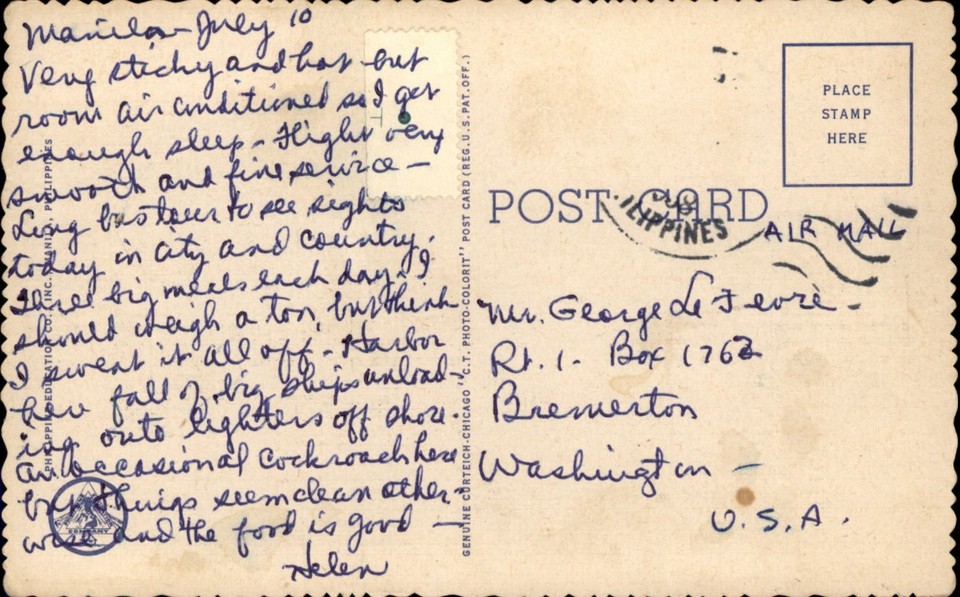 Manila - July 10
Very sticky and hot but
room air conditioned so I get
enough sleep - Flight very
smooth and fine service -
Long bus tour to see sights
today in city and country.
Three big meals each day - I
should weigh a ton, but think
I sweat it all off - Harbor
here full of big ships unload-
ing onto lighters off shore.
An occasional cockroach here
but things seem clean other-
wise and the food is good -
Helen
PHILIPPINE EDUCATION CO., INC. MANILA, PHILIPPINES
GENUINE CURTEICH-CHICAGO "C.T. PHOTO-COLORIT" POST CARD (REG. U.S. PAT. OFF.)
PLACE
STAMP
HERE
POST CARD
ILIPPINES
AIR MAIL
Mr. George Le Fevre -
Rt. 1 - Box 1762
Bremerton
Washington -
U.S.A.
COMPANY